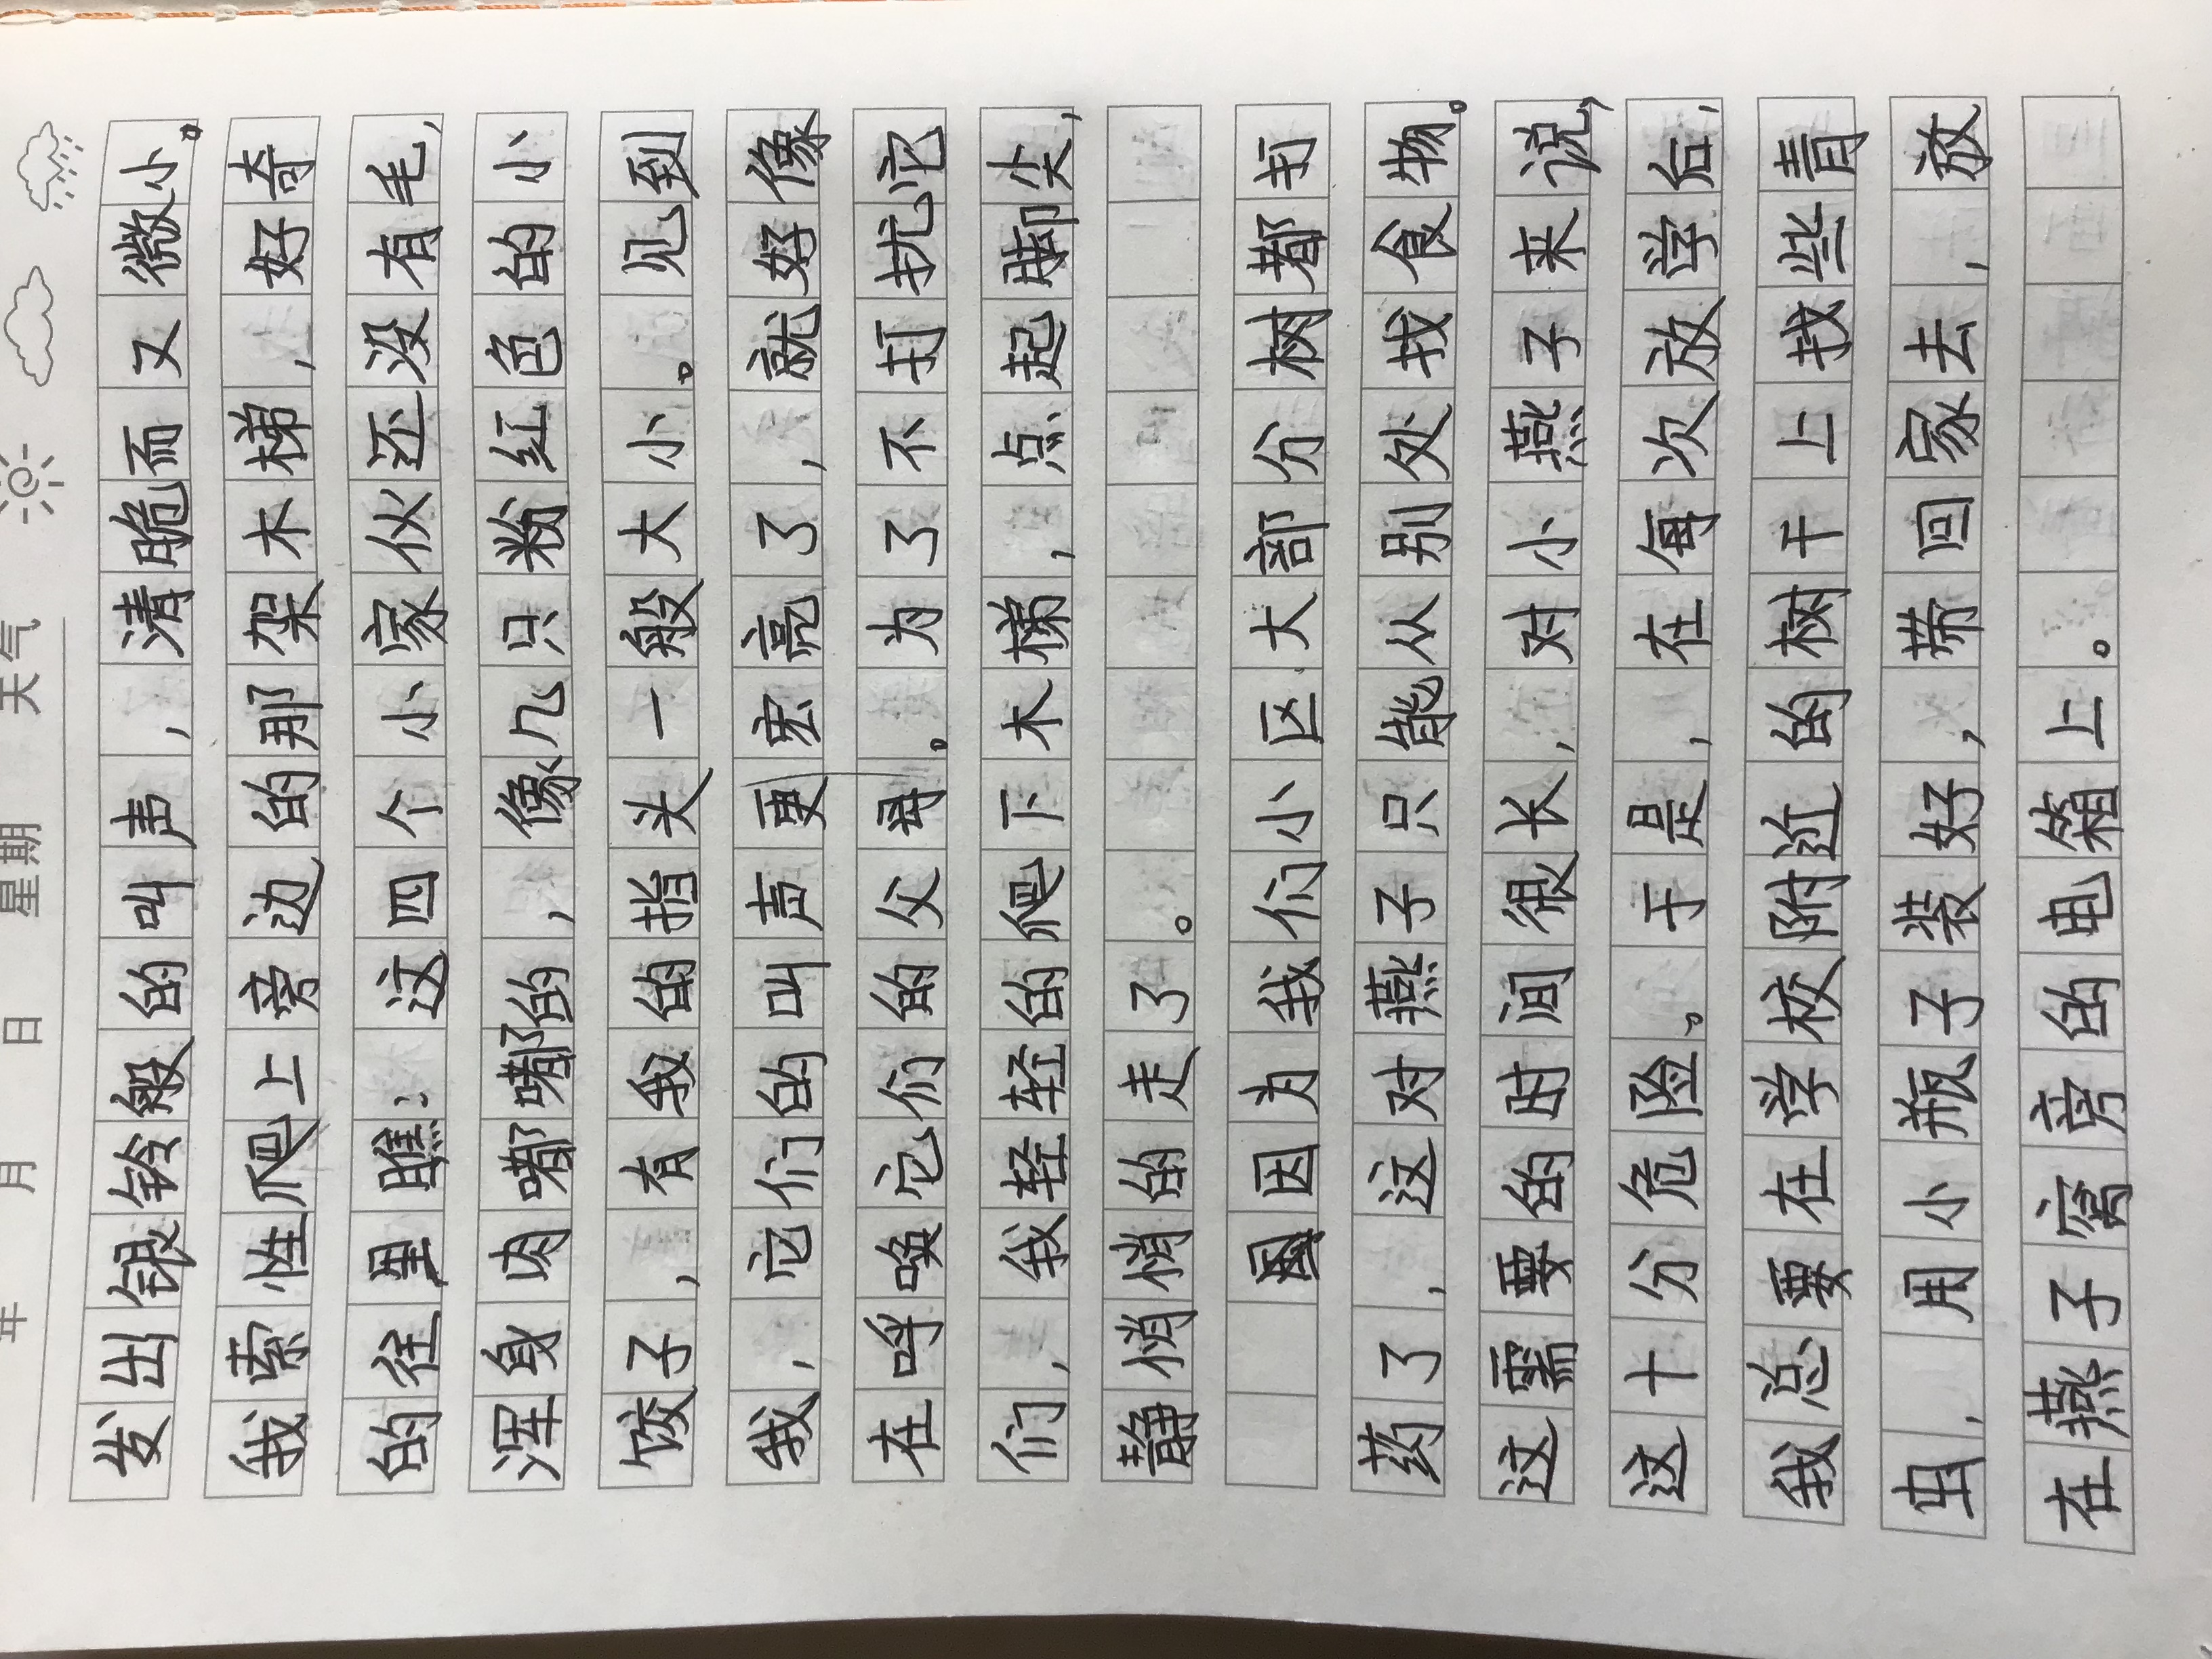 年 月 日 星期 天气
发出银铃般的叫声，清脆而又微小。
我索性爬上旁边的那架木梯，好奇
的往里瞧：这四个小家伙还没有毛，
浑身肉嘟嘟的，像几只粉红色的小
饺子，有我的指头一般大小。见到
我，它们的叫声更宏亮了，就好像
在呼唤它们的父母。为了不打扰它
们，我轻轻的爬下木梯，点起脚尖，
静悄悄的走了。
因为我们小区大部分树都打
药了，这对燕子只能从别处找食物。
这需要的时间很长，对小燕子来说，
这十分危险。于是，在每次放学后，
我总要在学校附近的树干上找些青
虫，用小瓶子装好，带回家去，放
在燕子窝旁的电箱上。